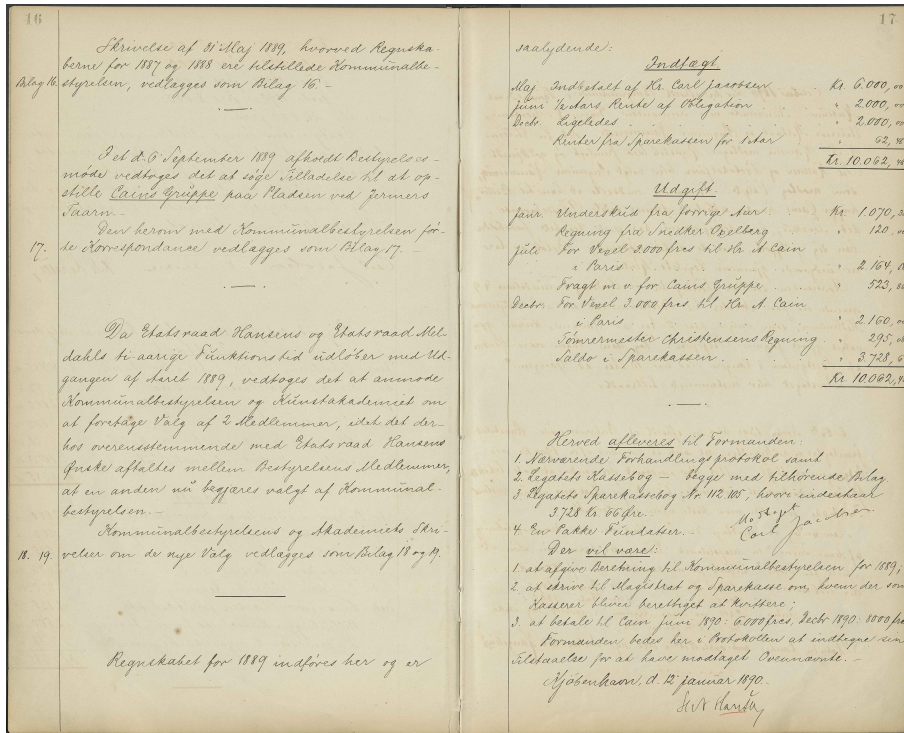 16
Skrivelse af 31 Maj 1889, hvorved Regnska-
berne for 1887 og 1888 ere tilstillede Kommunalbe-
Bilag 16. styrelsen, vedlægges som Bilag 16. —
I et d. 6 September 1889 afholdt Bestyrelses-
møde vedtoges det at søge Tilladelse til at op-
stille Cains Gruppe paa Pladsen ved Jermers
Taarn. —
Den herom med Kommunalbestyrelsen før-
17. te Korrespondance vedlægges som Bilag 17. —
Da Etatsraad Hansens og Etatsraad Mel-
dahls ti-aarige Funktionstid udløber med Ud-
gangen af Aaret 1889, vedtoges det at anmode
Kommunalbestyrelsen og Kunstakademiet om
at foretage Valg af 2 Medlemmer, idet det der-
hos overensstemmende med Etatsraad Hansens
Ønske aftaltes mellem Bestyrelsens Medlemmer,
at en anden nu begjæres valgt af Kommunal-
bestyrelsen. —
Kommunalbestyrelsens og Akademiets Skri-
18. 19. velser om de nye Valg vedlægges som Bilag 18 og 19.
Regnskabet for 1889 indføres her og er
17
saalydende:
Indtægt
Maj Indbetalt af Hr. Carl Jacobsen . Kr. 6.000,00
Juni 1/2 Aars Rente af Obligation . " 2.000,00
Decbr. Ligeledes . . . " 2.000,00
Renter fra Sparekassen for 1 Aar " 62,
Kr. 10.062,
Udgift.
Janr. Underskud fra forrige Aar . Kr. 1.070,
Regning fra Snedker Oxelberg " 120,
Juli For Vexel 3.000 frcs til Hr. A. Cain
i Paris . . . " 2 164,
Fragt m. v. for Cains Gruppe . " 523,
Decbr. For Vexel 3.000 frcs til Hr. A. Cain
i Paris . . . " 2.160,
Tømrermester Christensens Regning . " 295,
Saldo i Sparekassen . . . " 3.728,
Kr. 10.062,
Herved afleveres til Formanden:
1. Nærværende Forhandlingsprotokol samt
2. Legatets Kassebog — begge med tilhørende Bilag
3 Legatets Sparekassebog Nr. 112.105, hvori indestaar
3728 Kr. 66 Øre.
4. En Pakke Fundatser. —
Modtaget
Carl Jacobsen
Der vil være:
1. at afgive Beretning til Kommunalbestyrelsen for 1889,
2. at skrive til Magistrat og Sparekasse om, hvem der som
Kasserer bliver berettiget at kvittere;
3. at betale til Cain Juni 1890: 6000 frcs, Decbr 1890: 8000 frcs
Formanden bedes her i Protokollen at indtegne sin
Tilstaaelse for at have modtaget Ovennævnte. —
Kjøbenhavn, d. 12 Januar 1890.